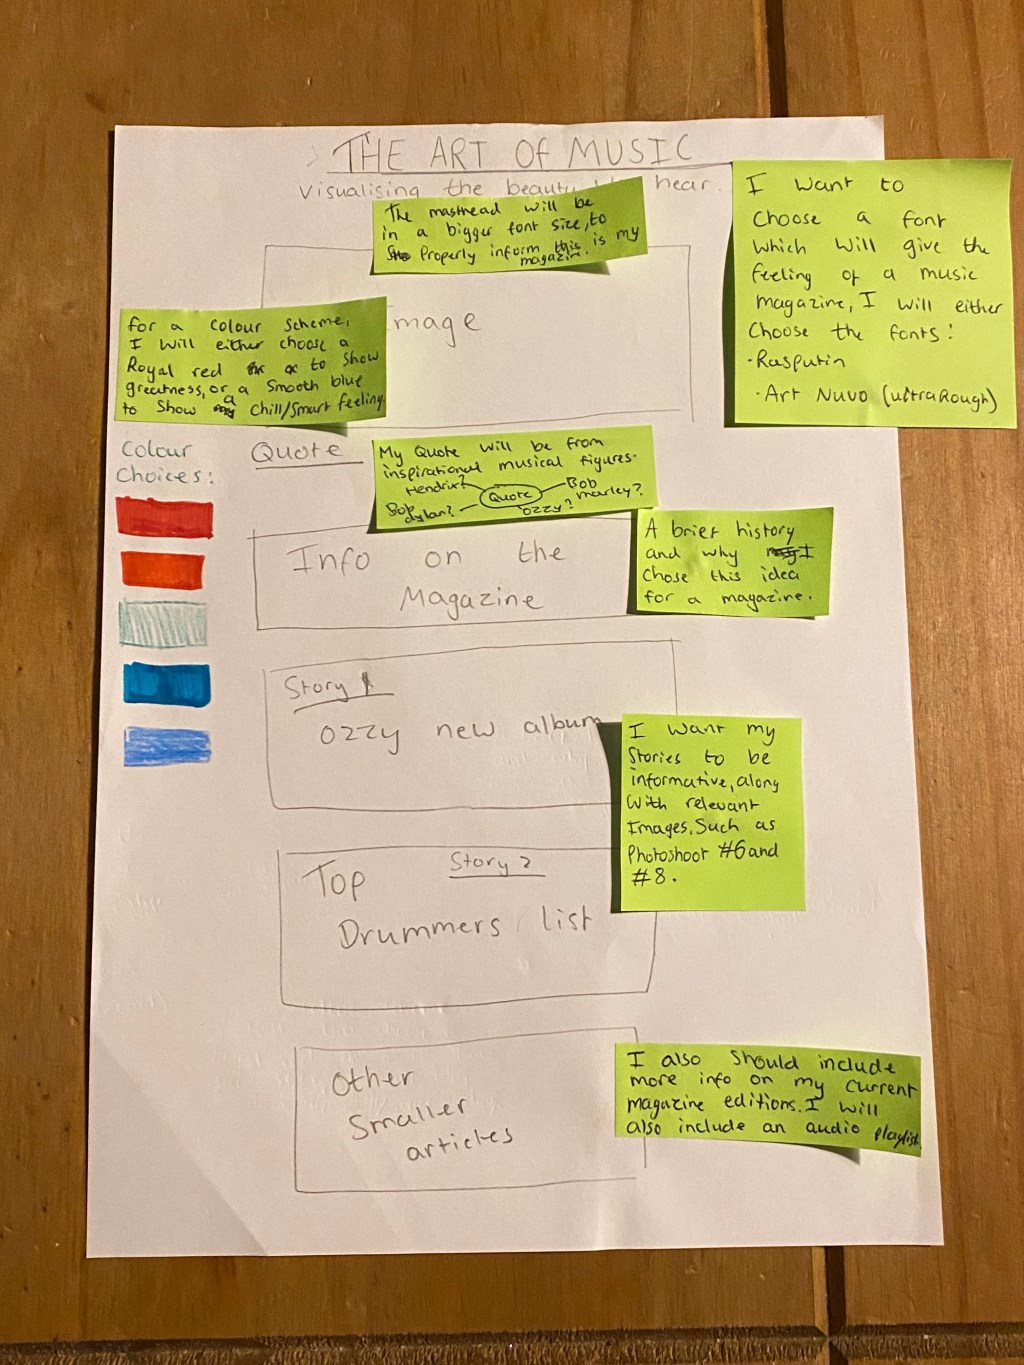 THE ART OF MUSIC
Visualising the beauty hear.
The masthead will be
in a bigger font size, to
Properly inform this is my
magazine.
I want to
Choose a font
Which will give the
feeling of a music
magazine, I will either
Choose the fonts:
·Rasputin
·Art Nuvo (ultraRough)
mage
for a colour scheme,
I will either choose a
Royal red to show
greatness, or a smooth blue
to show a Chill/Smart feeling.
Colour
Choices:
Quote
My Quote will be from
inspirational musical figures.
Hendrix?
Bob
marley?
Quote
Bob
dylan?
Ozzy?
Info on the
Magazine
A brief history
and why I
Chose this idea
for a magazine.
Story 1
Ozzy new album
I want my
Stories to be
informative, along
with relevant
Images, Such as
Photoshoot #6 and
#8.
Story 2
Top
Drummers list
Other
Smaller
articles
I also should include
more info on my current
magazine editions. I will
also include an audio playlist.